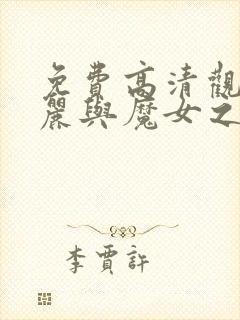 免費高清觀
麗與魔女之
李賈許